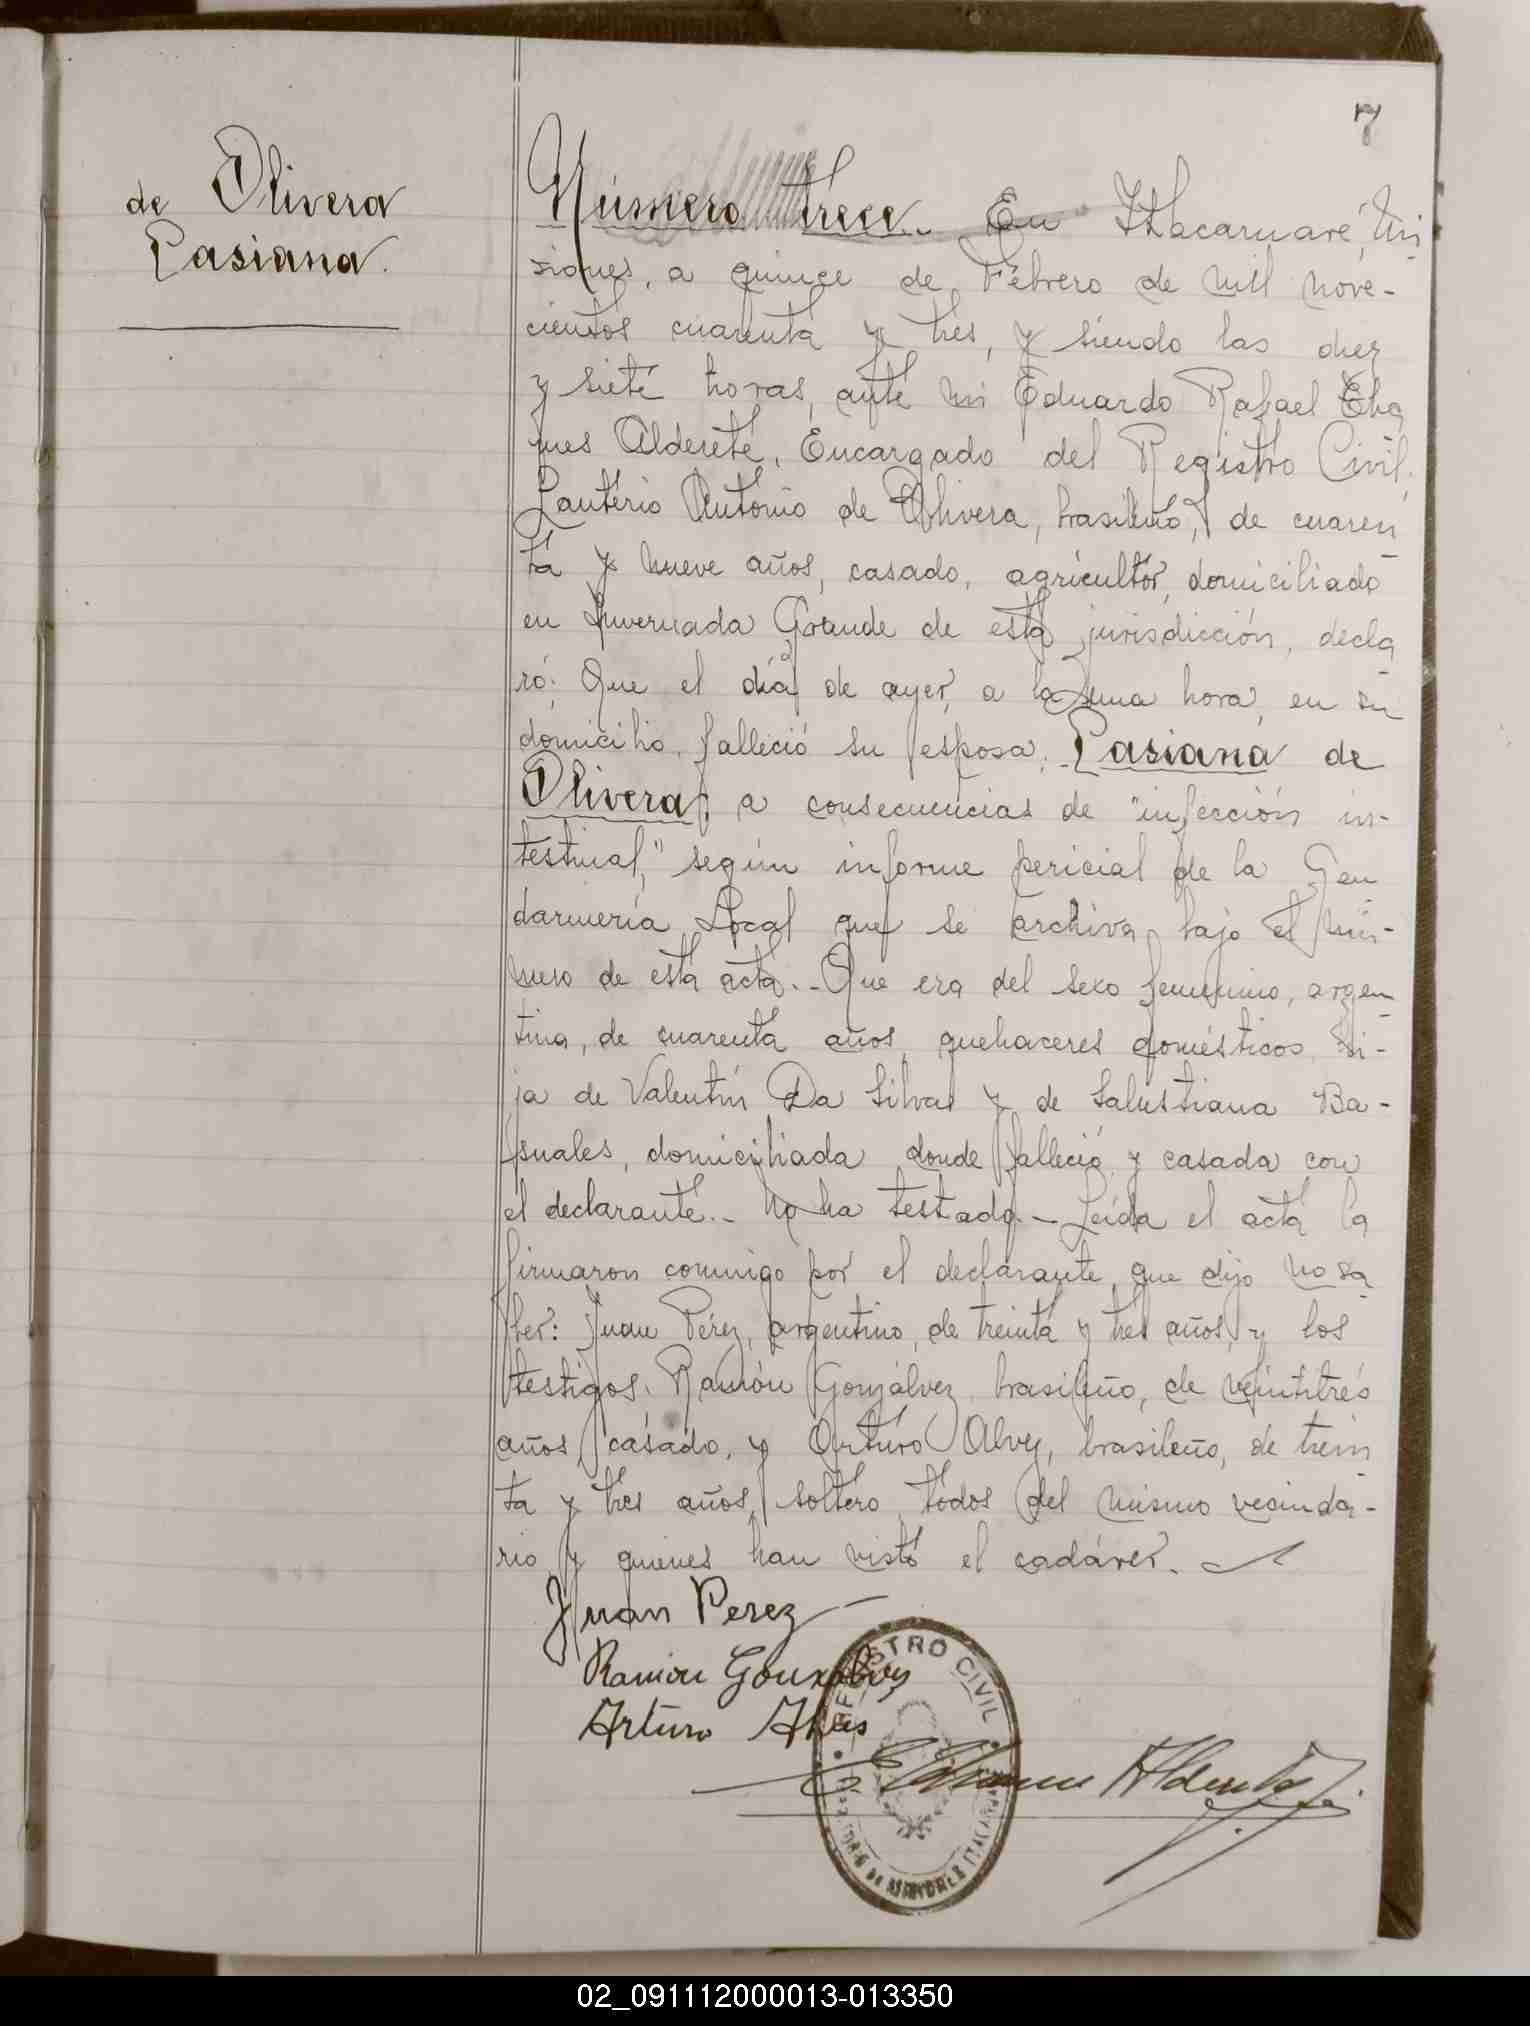 7
de Olivera
Casiana.
Número trece.- En Itacaruaré, Mi
siones, a quince de Febrero de mil nove-
cientos cuarenta y tres, y siendo las diez
y siete horas, ante mi Eduardo Rafael Cha
ques Alderete, Encargado del Registro Civil,
Lauterio Antonio de Olivera, brasileño, de cuaren
ta y nueve años, casado, agricultor, domiciliado
en Invernada Grande de esta jurisdicción, decla
ró: Que el día de ayer, a la una hora, en su
domicilio, falleció su esposa, Casiana de
Olivera, a consecuencias de "infección in-
testinal," según informe pericial de la Gen
darmería Local que se archiva bajo el nú-
mero de esta acta.- Que era del sexo femenino, argen
tina, de cuarenta años, quehaceres domésticos, hi-
ja de Valentín Da Silva y de Salustiana Ba-
suales, domiciliada donde falleció y casada con
el declarante.- No ha testado.- Leída el acta la
firmaron conmigo por el declarante que dijo no sa
ber: Juan Pérez, argentino, de treinta y tres años, y los
testigos: Ramón Gonzálvez, brasileño, de veintitrés
años, casado, y Arturo Alvez, brasileño, de trein
ta y tres años, soltero, todos del mismo vecinda-
rio y quienes han visto el cadáver.
Juan Perez
Ramon Gonzalvez
Arturo Alves
REGISTRO CIVIL
Alderete
02_091112000013-013350